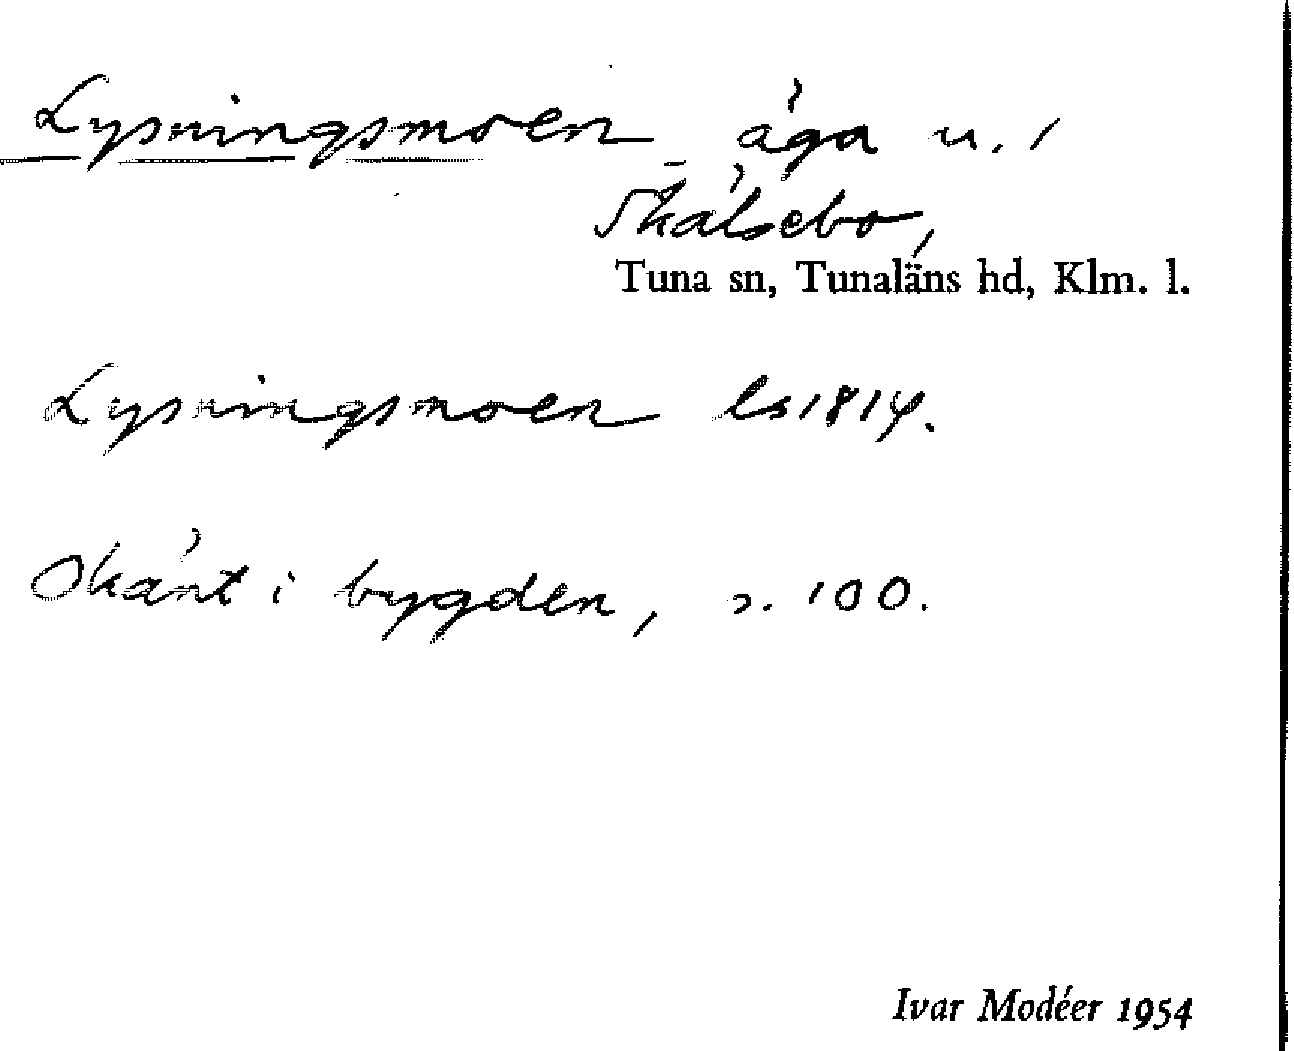 Lysningsmoen äga u. 1
Skälsebo,
Tuna sn, Tunaläns hd, Klm. l.
Lysningsmoen ls 1814.
Okänt i bygden, s. 100.
Ivar Modéer 1954